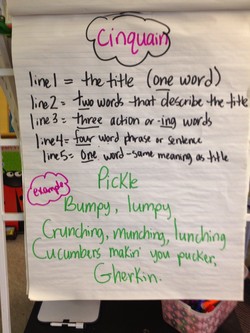 Cinquain
line 1 = the title (one word)
line 2 = two words that describe the title
line 3 = three action or -ing words
line 4 = four word phrase or sentence
line 5 = One word - same meaning as title
example
Pickle
Bumpy, lumpy
Crunching, munching, lunching
Cucumbers makin' you pucker,
Gherkin.